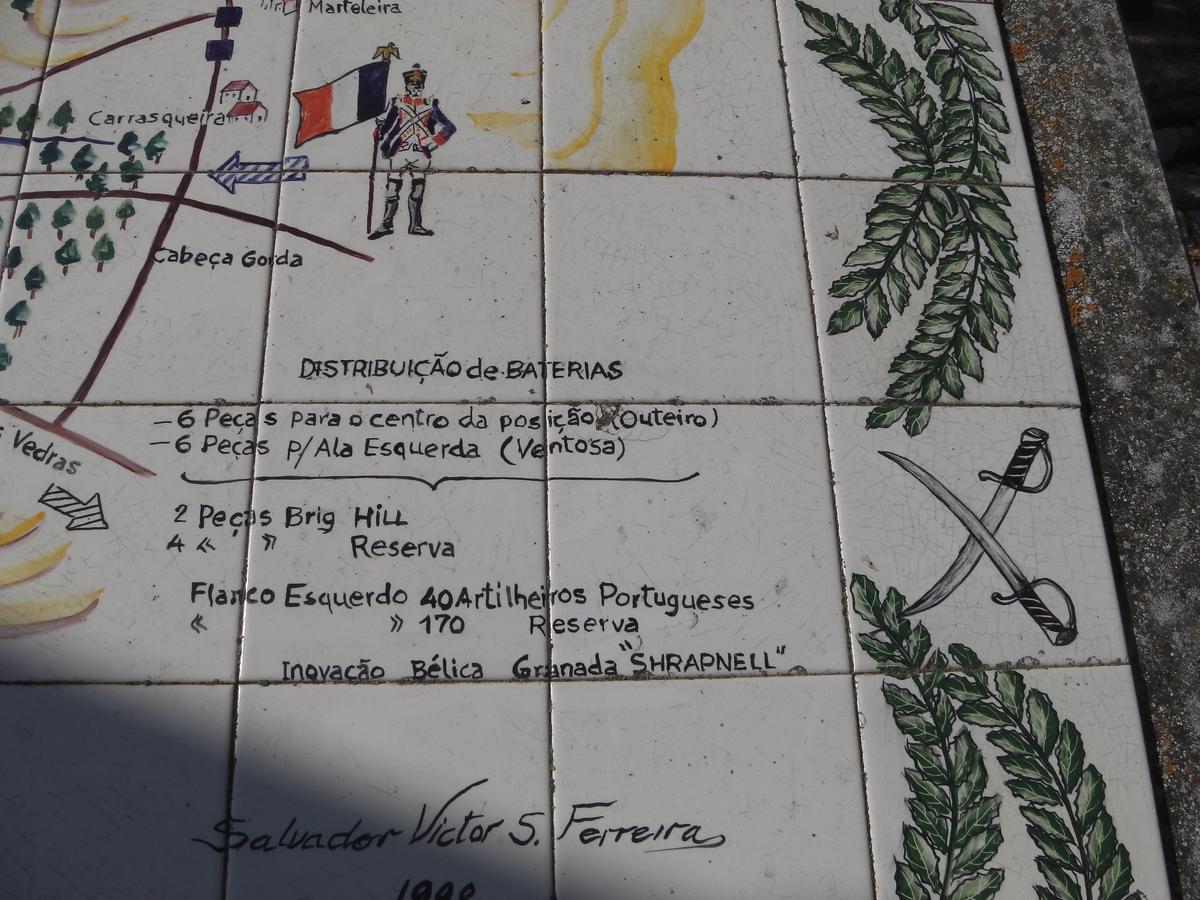 Marteleira
Carrasqueira
Cabeça Gorda
DISTRIBUIÇÃO de BATERIAS
- 6 Peças para o centro da posição (Outeiro)
- 6 Peças p/Ala Esquerda (Ventosa)
Vedras
2 Peças Brig HILL
4 « » Reserva
Flanco Esquerdo 40 Artilheiros Portugueses
« » 170 Reserva
Inovação Bélica Granada "SHRAPNELL"
Salvador Victor S. Ferreira